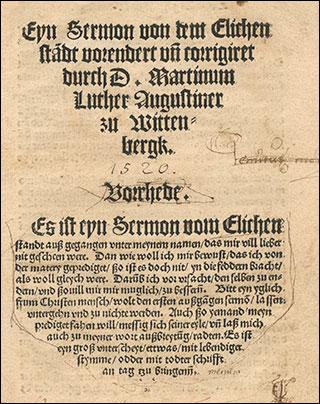 Eyn Sermon von dem Elichen
stādt vorendert uñ corrigiret
durch D. Martinum
Luther Augustiner
zu Witten-
bergk.
1520.
Vorrhede.
Es ist eyn Sermon vom Elichen
standt auß gangen unter meynem namen/das mir vill lieber
nit geschen were. Dan wie woll ich mir bewust/das ich von
der matery geprediget/ßo ist es doch nit/yn die feddern bracht/
als woll gleych were. Darūb ich vorursacht/den selben zu en-
dern/und ßovill mir müglich/zu bessern. Bitt eyn yglich
frum Christen mensch/wolt den ersten außgangen sermō/lassen
untergehn und zu nichte werden. Auch ßo yemand/meyn
prediget fahen will/messig sich seiner eyle/uñ laß mich
auch zu meyner wort außbreytūg/raden. Es ist
eyn groß unterscheyt/ettwas/mit lebendiger
stymme/odder mit todter schrifft
an tag zu bringenn.